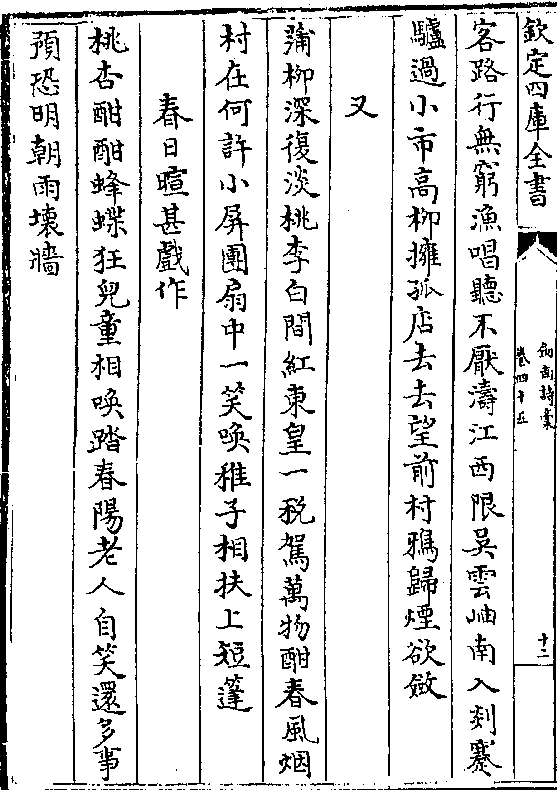 欽定四庫全書
劍南詩稾
卷四十五
十二
客路行無窮漁唱聽不厭濤江西限吳雲岫南入剡蹇
驢過小市高柳擁孤店去去望前村鴉歸煙欲斂
又
蒲柳深復淡桃李白間紅東皇一稅駕萬物酣春風烟
村在何許小屏團扇中一笑喚稚子相扶上短蓬
春日暄甚戲作
桃杏酣酣蜂蝶狂兒童相喚踏春陽老人自笑還多事
預恐明朝雨壞牆